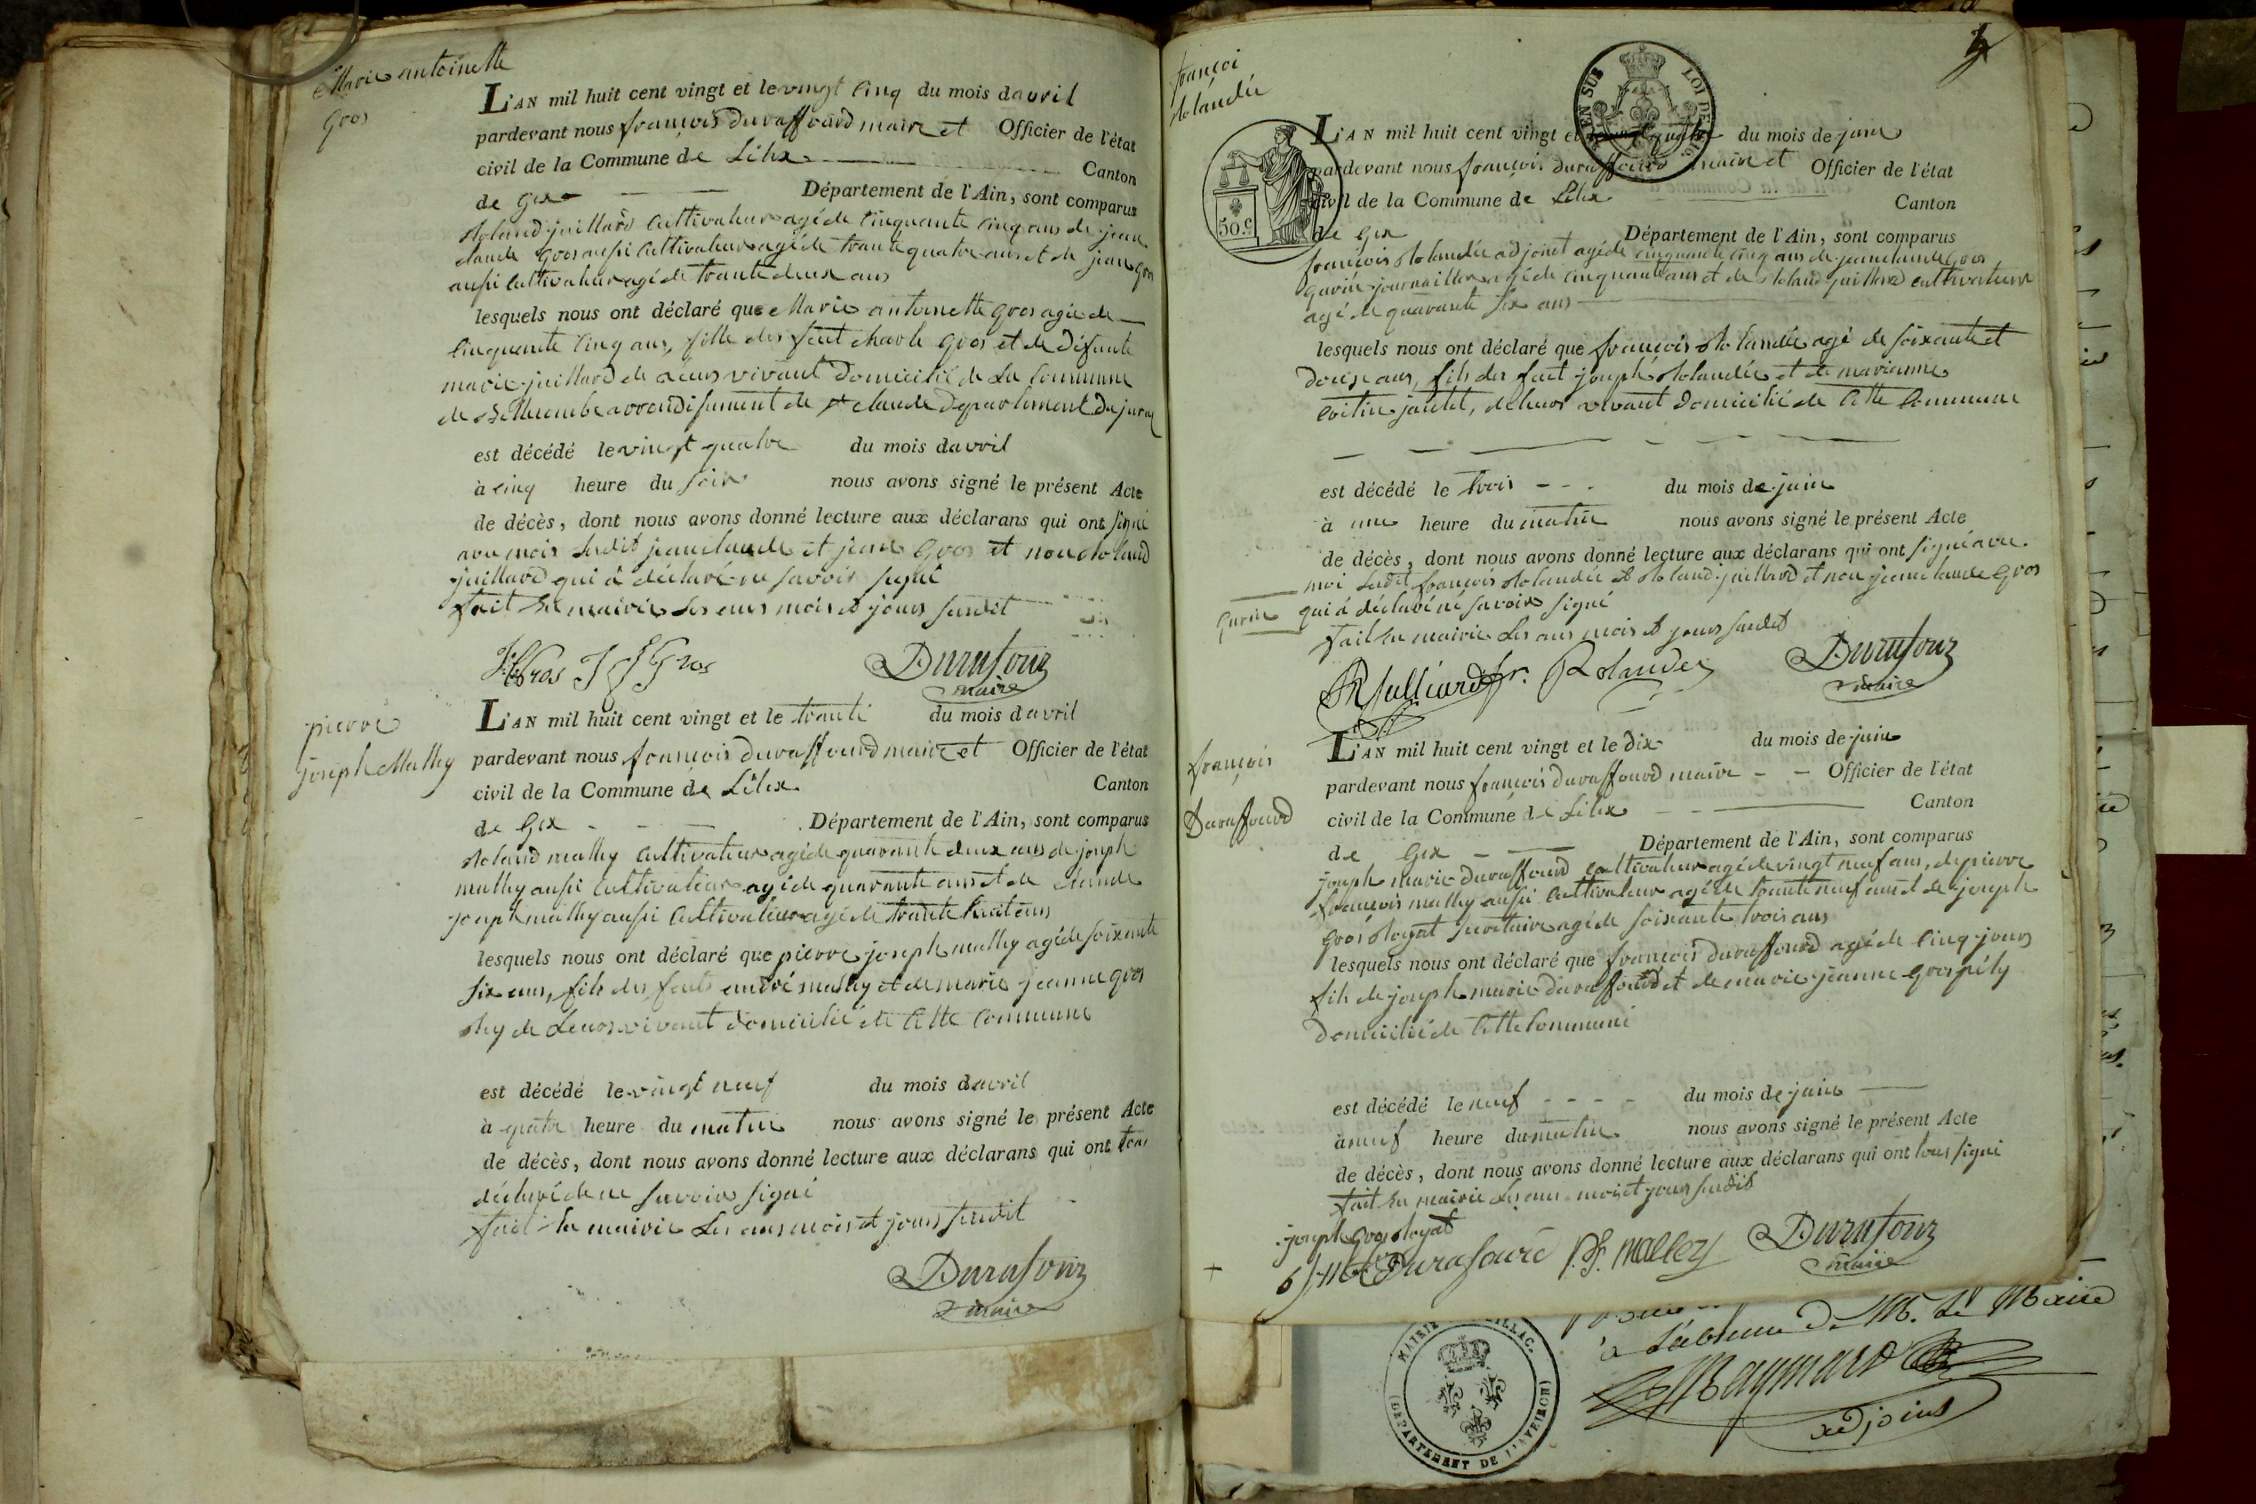 Marie antoinette
Gros
L'AN mil huit cent vingt et le vingt cinq du mois davril
pardevant nous françois duraffourd maire et Officier de l'état
civil de la Commune de Lélex Canton
de Gex Département de l'Ain, sont comparus
Roland juillard Cultivateur agé de Cinquante Cinq ans de jean
claude Gros aussi Cultivateur agé de trante quatre ans et de jean Gros
aussi Cultivateur agé de trante deux ans
lesquels nous ont déclaré que Marie antoinette Gros agée de
Cinquante Cinq ans, fille des feut charle Gros et de défunte
marie juillard de vivant domicilié de La Commune
de arrondisement de st claude département du jura
est décédé le vingt quatre du mois davril
à cinq heure du soir nous avons signé le présent Acte
de décès, dont nous avons donné lecture aux déclarans qui ont signé
avec mois Sudit jean claude et jean Gros et non Roland
juillard qui à déclaré ne savoir signé
fait En mairie Les ans mois et jours sudit
J C Gros J J Gros Durafour
maire
pierre
joseph Mathy
L'AN mil huit cent vingt et le trante du mois davril
pardevant nous françois duraffourd maire et Officier de l'état
civil de la Commune de Lélex Canton
de Gex Département de l'Ain, sont comparus
Roland mathy Cultivateur agé de quarante deux ans de joseph
mathy aussi Cultivateur agé de quarante ans et de claude
joseph mathy aussi Cultivateur agé de trante huit ans
lesquels nous ont déclaré que pierre joseph mathy agé de soixante
six ans, fils des feuts andré mathy et de marie jeanne gros
de Leurs vivant domicilié de Cette Commune
est décédé le vingt neuf du mois davril
à quatre heure du matin nous avons signé le présent Acte
de décès, dont nous avons donné lecture aux déclarans qui ont tous
déclaré de ne savoir signé
fait En mairie Les ans mois et jours sudit
Durafour
maire
françoi
Rolandée
TIMBRE EN SUS LOI DE 1816
50 c
L'AN mil huit cent vingt et le quatre du mois de juin
pardevant nous françois duraffourd maire et Officier de l'état
civil de la Commune de Lélex Canton
de Gex Département de l'Ain, sont comparus
françois Rolandée adjoint agé de cinquante cinq ans de jean claude Gros
Gurin journaillier agé de cinquante ans et de Roland juillard cultivateur
agé de quarante six ans
lesquels nous ont déclaré que françois Rolandée agé de soixante et
douze ans, fils des feut joseph Rolandée et de marianne
de leurs vivant domicilié de Cette Commune
est décédé le trois du mois de juin
à une heure du matin nous avons signé le présent Acte
de décès, dont nous avons donné lecture aux déclarans qui ont signé avec
moi Sudit françois Rolandée et Roland juillard et non jean claude Gros
Gurin qui à déclaré ne savoir signé
fait En mairie Les ans mois et jours sudit
R Julliard fr. Rolandez Durafour
maire
françois
Duraffourd
L'AN mil huit cent vingt et le dix du mois de juin
pardevant nous françois duraffourd maire Officier de l'état
civil de la Commune de Lélex Canton
de Gex Département de l'Ain, sont comparus
joseph marie duraffourd cultivateur agé de vingt neuf ans, de pierre
françois mathy aussi Cultivateur agé de trante neuf ans et de joseph
Gros Royat Secretaire agé de soixante trois ans
lesquels nous ont déclaré que françois duraffourd agé de cinq jours
fils de joseph marie duraffourd et de marie jeanne Gros pély
domicilié de Cette Commune
est décédé le neuf du mois de juin
à neuf heure du matin nous avons signé le présent Acte
de décès, dont nous avons donné lecture aux déclarans qui ont tous signé
fait En mairie Les ans mois et jours sudit
joseph Gros Royat
j m Durafourd P. f. malley Durafour
maire
à l'absence de M. le Maire
Raymard
adjoint
MAIRIE
(DÉPARTEMENT DE L'AVEIRON)